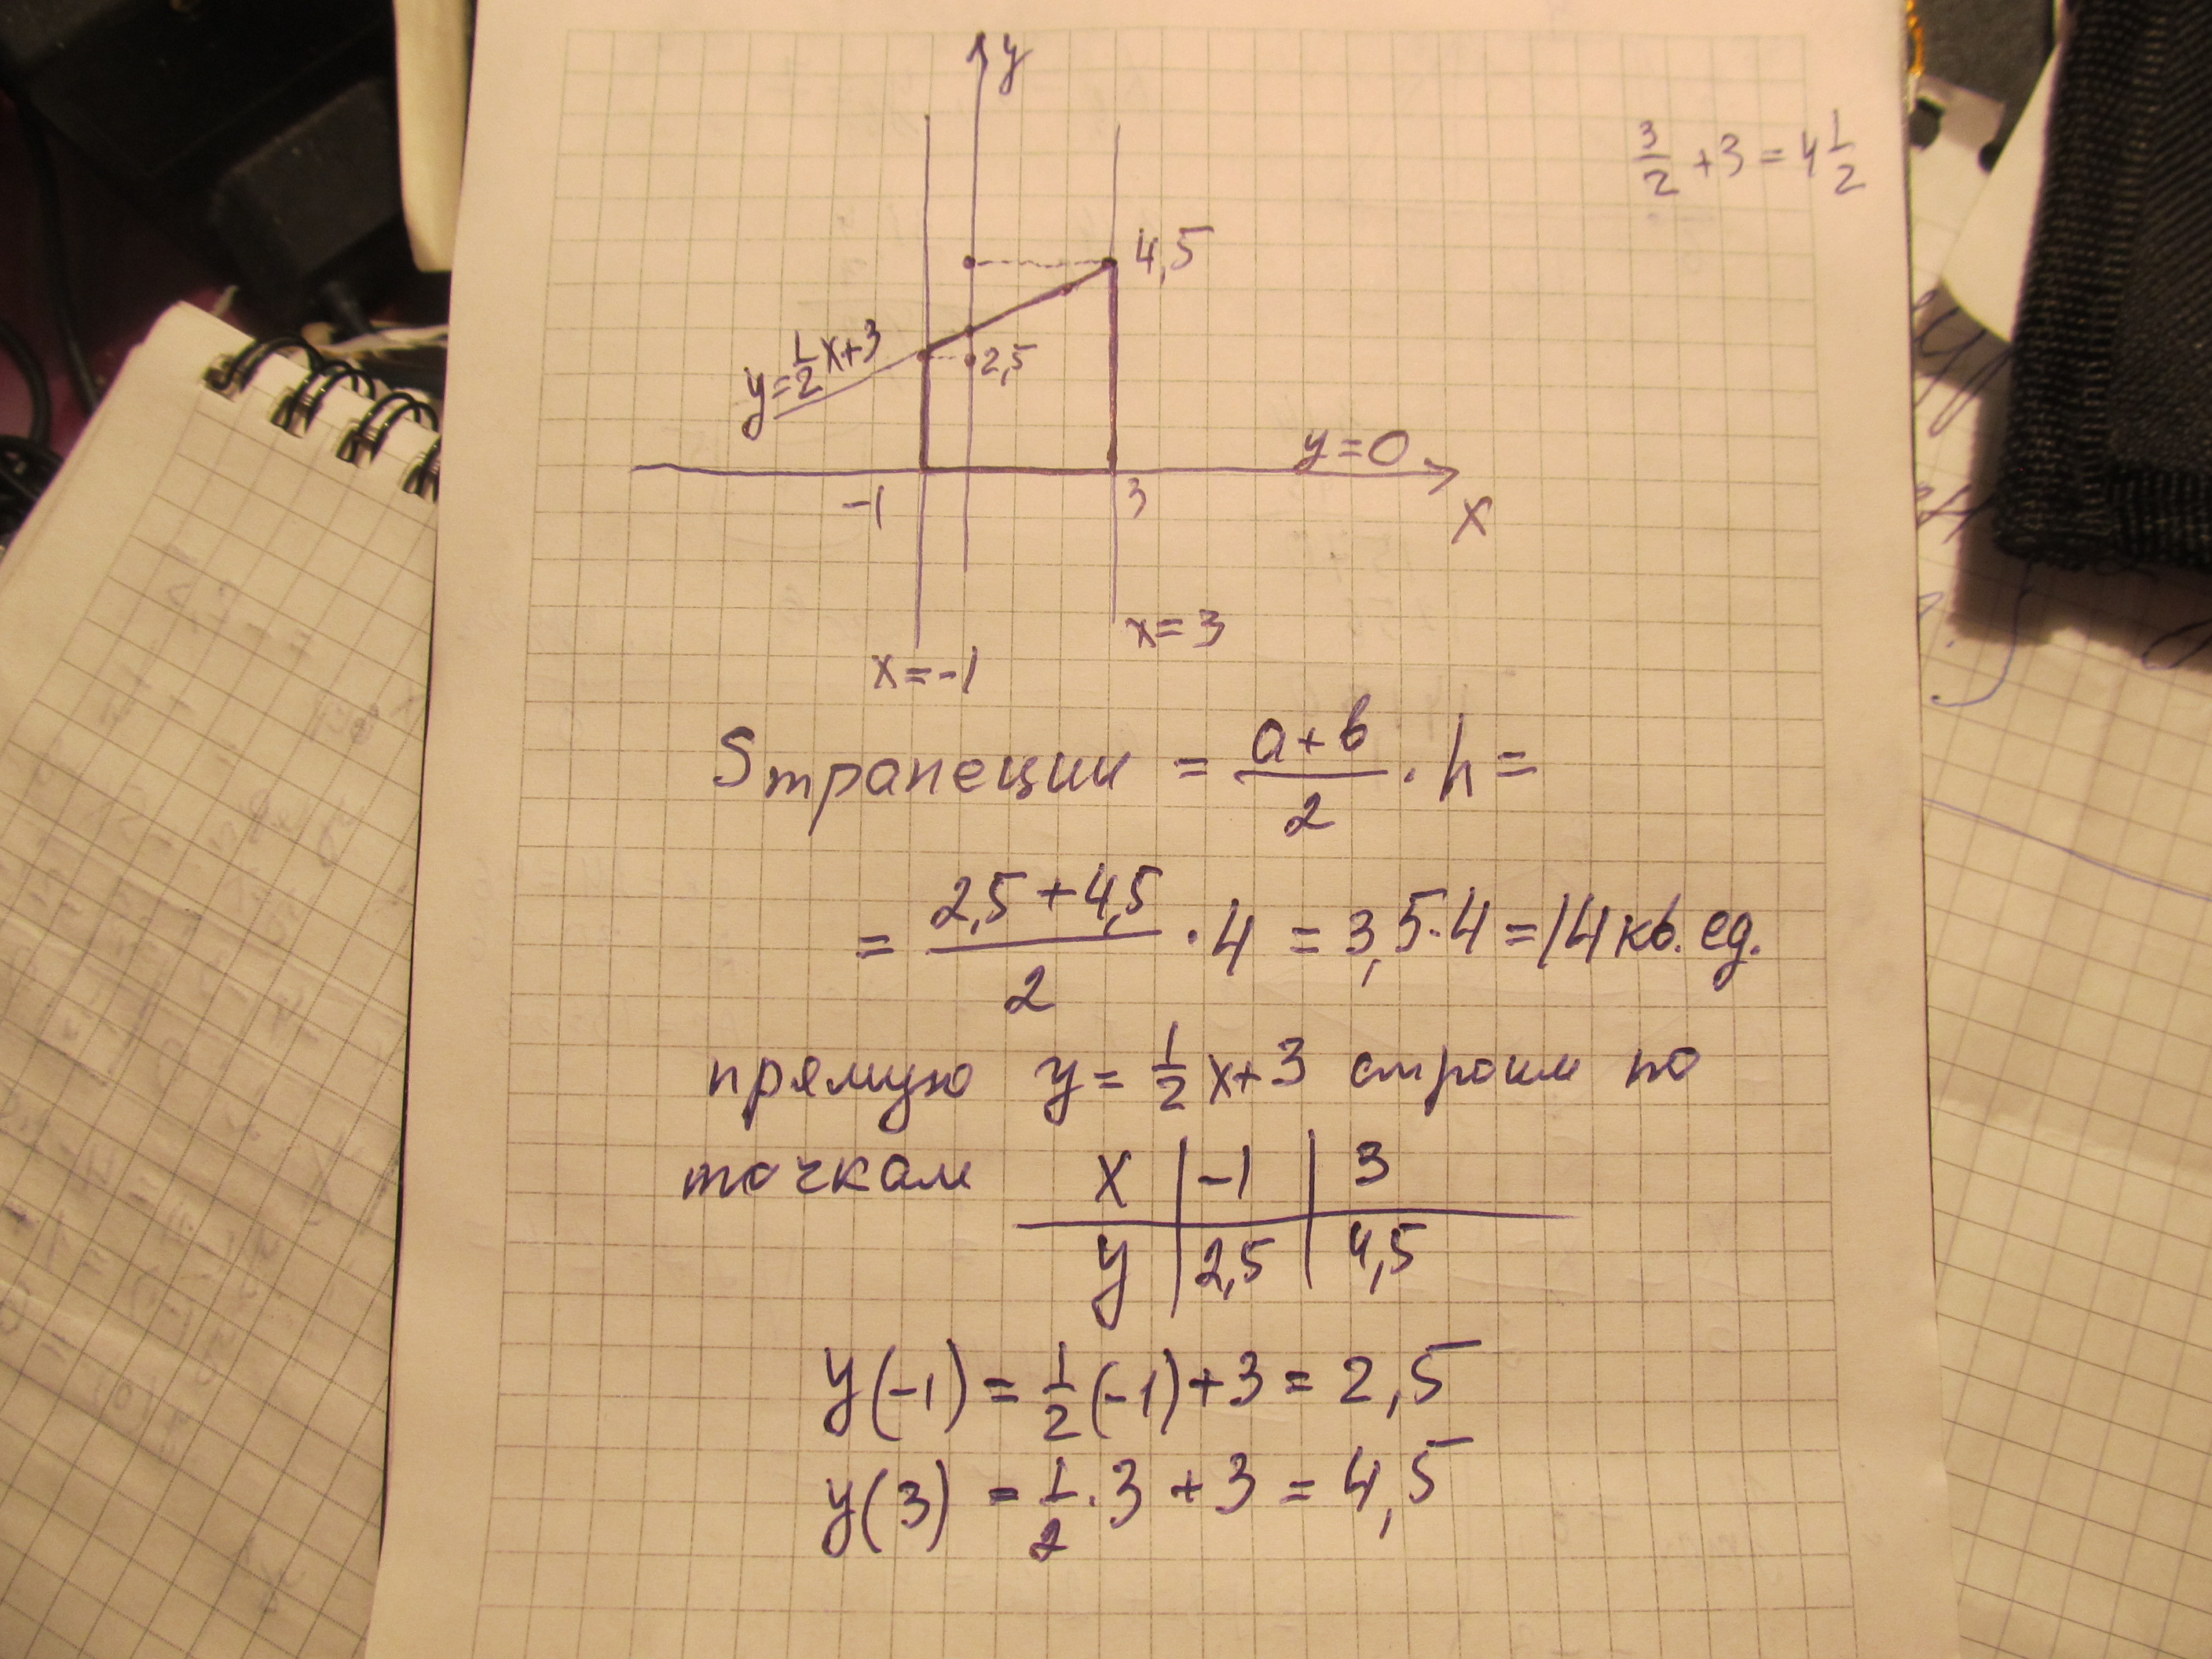 y
3/2 + 3 = 4 1/2
4,5
y = 1/2 x + 3
2,5
y = 0
-1
3
x
x = 3
x = -1
S трапеции = (a + b)/2 · h =
= (2,5 + 4,5)/2 · 4 = 3,5 · 4 = 14 кв. ед.
прямую y = 1/2 x + 3 строим по
точкам x | -1 | 3
y | 2,5 | 4,5
y(-1) = 1/2 (-1) + 3 = 2,5
y(3) = 1/2 · 3 + 3 = 4,5